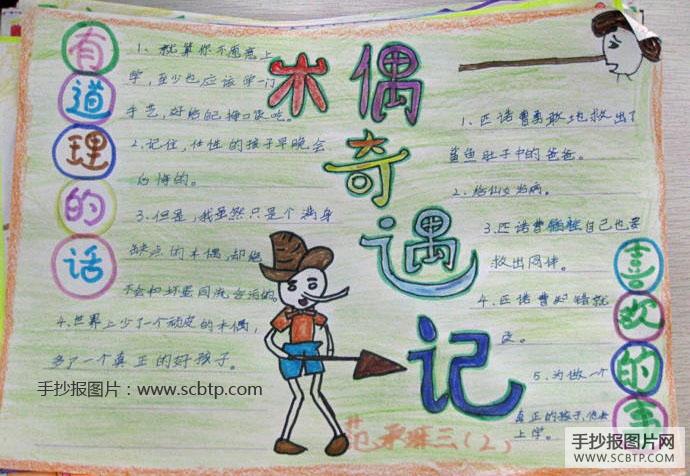 木偶奇遇记
有道理的话
1、就算你不愿意上
学，至少也应该学一门
手艺，好给自己挣口饭吃。
2.记住，任性的孩子早晚会
后悔的。
3.但是，我虽然只是个满身
缺点的木偶，却绝
不会和坏蛋同流合污的。
4.世界上少了一个顽皮的木偶，
多了一个真正的好孩子。
喜欢的事
1、匹诺曹勇敢地救出了
鲨鱼肚子中的爸爸。
2、给仙女治病。
3.匹诺曹牺牲自己也要
救出同伴。
4、匹诺曹知错就
改。
5.为做一个
真正的孩子，他去
上学。
三(2)
手抄报图片：www.scbtp.com
手抄报图片网
WWW.SCBTP.COM